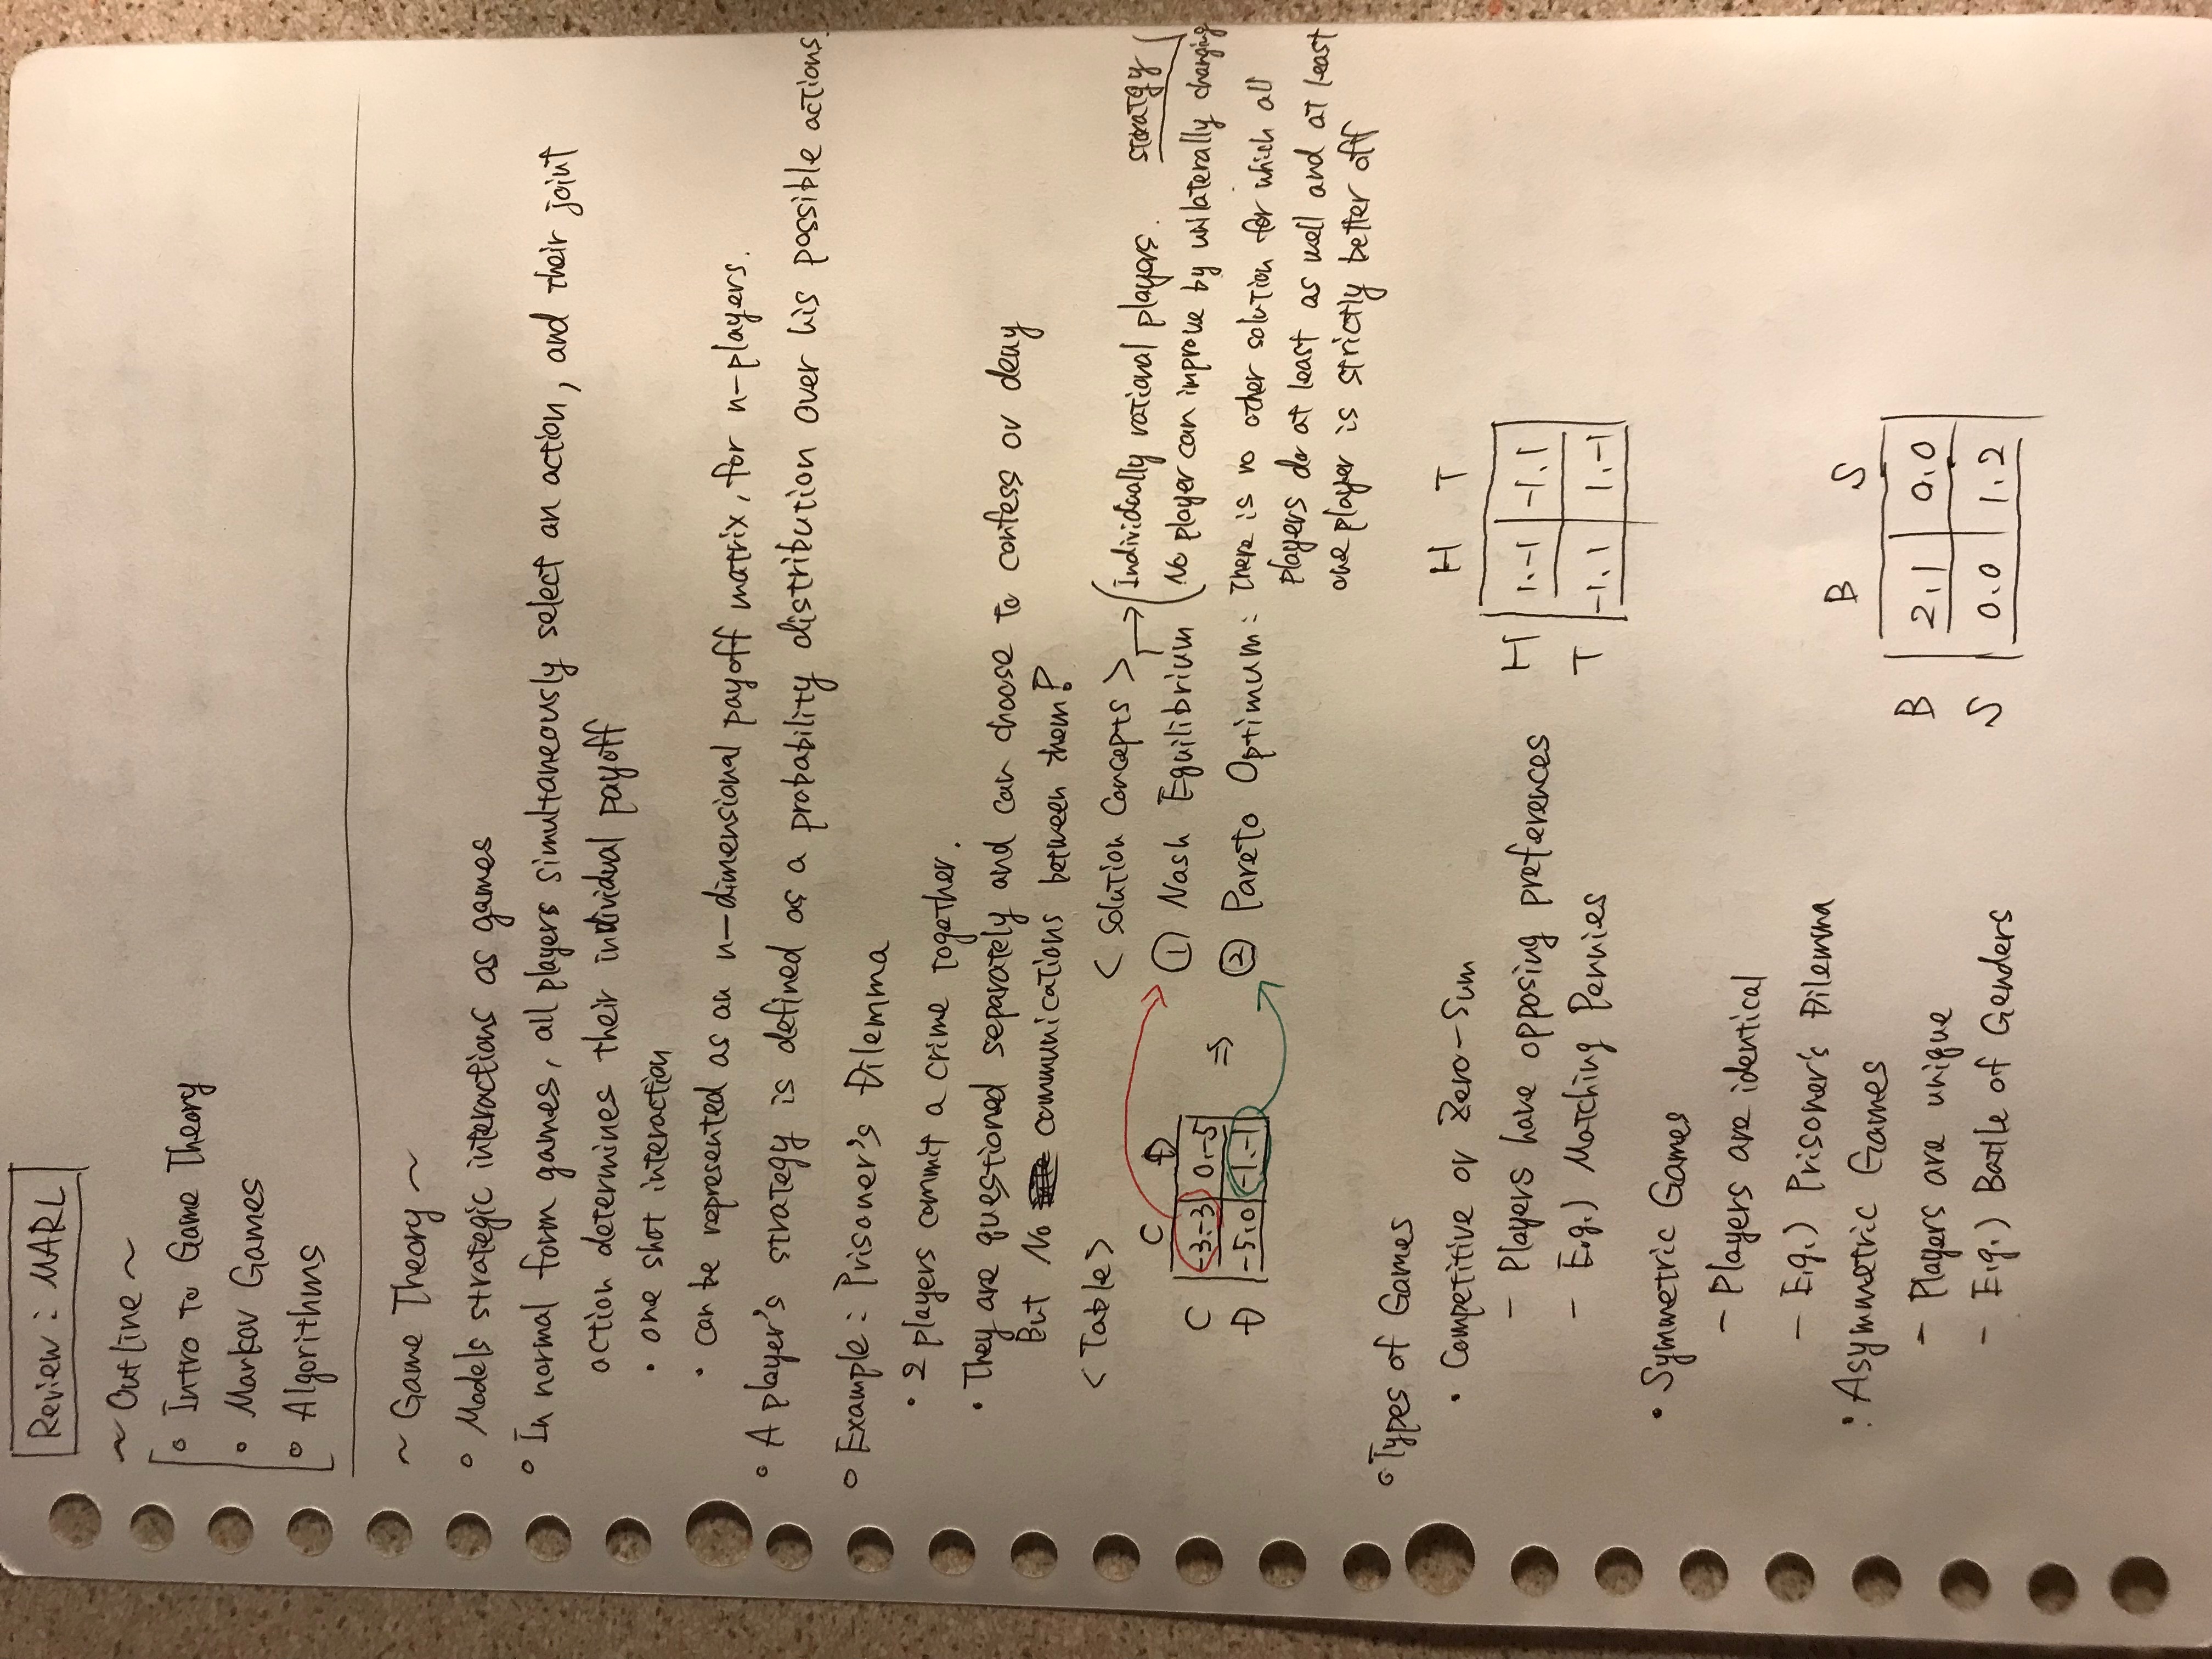 Review : MARL
~ Outline ~
∘ Intro to Game Theory
∘ Markov Games
∘ Algorithms
~ Game Theory ~
∘ Models strategic interactions as games
∘ In normal form games, all players simultaneously select an action, and their joint
action determines their individual payoff
• one shot interaction
• can be represented as an n-dimensional payoff matrix, for n-players.
∘ A player's strategy is defined as a probability distribution over his possible actions.
∘ Example : Prisoner's Dilemma
• 2 players commit a crime together.
• They are questioned separately and can choose to confess or deny
But No communications between them!
<Table>
<Solution Concepts> → Individually rational players.
C D
C -3.-3 0.-5
D -5.0 -1.-1
⇒
① Nash Equilibrium (No player can improve by unilaterally changing strategy)
② Pareto Optimum : There is no other solution for which all
players do at least as well and at least
one player is strictly better off
∘ Types of Games
• Competitive or Zero-Sum
- Players have opposing preferences
- E.g.) Matching Pennies
H T
H 1.-1 -1.1
T -1.1 1.-1
• Symmetric Games
- Players are identical
- E.g.) Prisoner's Dilemma
• Asymmetric Games
- Players are unique
- E.g.) Battle of Genders
B S
B 2.1 0.0
S 0.0 1.2